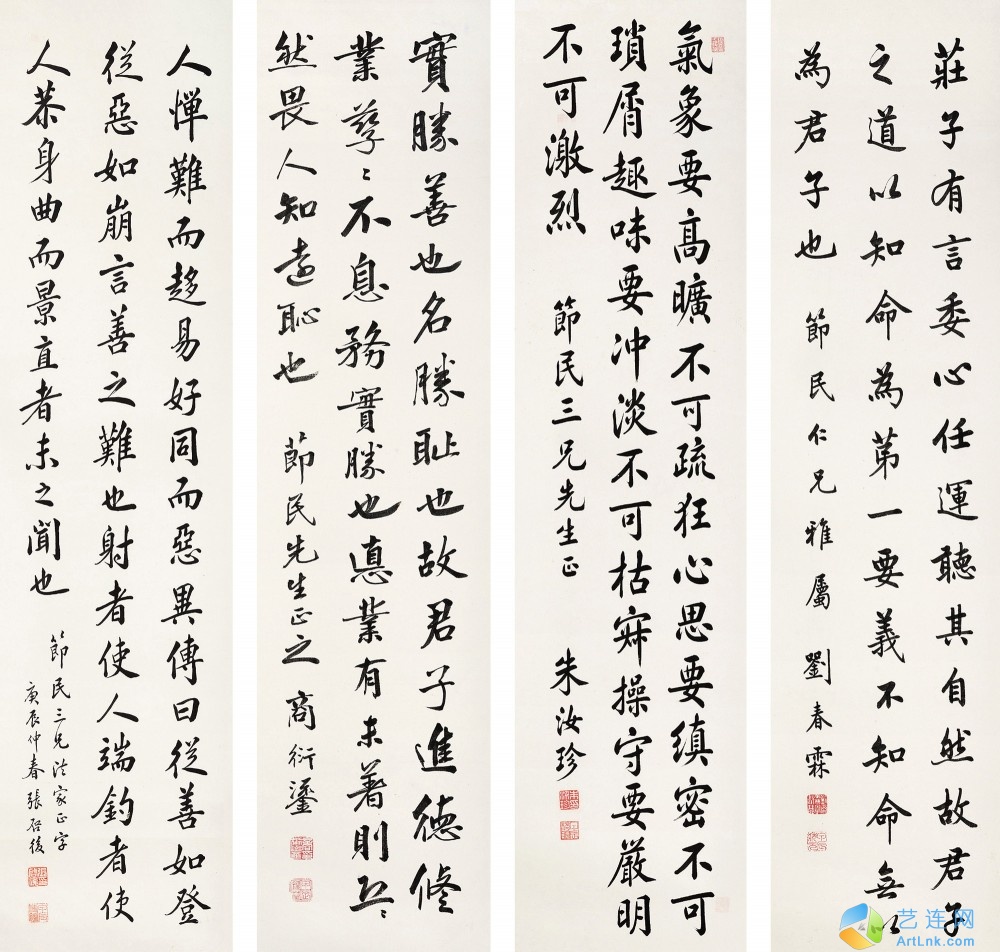 莊子有言委心任運聽其自然故君子
之道以知命為第一要義不知命無以
為君子也 節民仁兄雅屬 劉春霖
氣象要高曠不可疏狂心思要縝密不可
瑣屑趣味要冲淡不可枯寂操守要嚴明
不可激烈 節民三兄先生正 朱汝珍
實勝善也名勝耻也故君子進德修
業孳〻不息務實勝也德業有未著則恐〻
然畏人知遠恥也 節民先生正之 商衍鎏
人憚難而趍易好同而惡異傳曰從善如登
從惡如崩言善之難也射者使人端釣者使
人恭身曲而景直者未之聞也
節民三兄法家正字
庚辰仲春張啓後
艺连网
ArtLnk.com